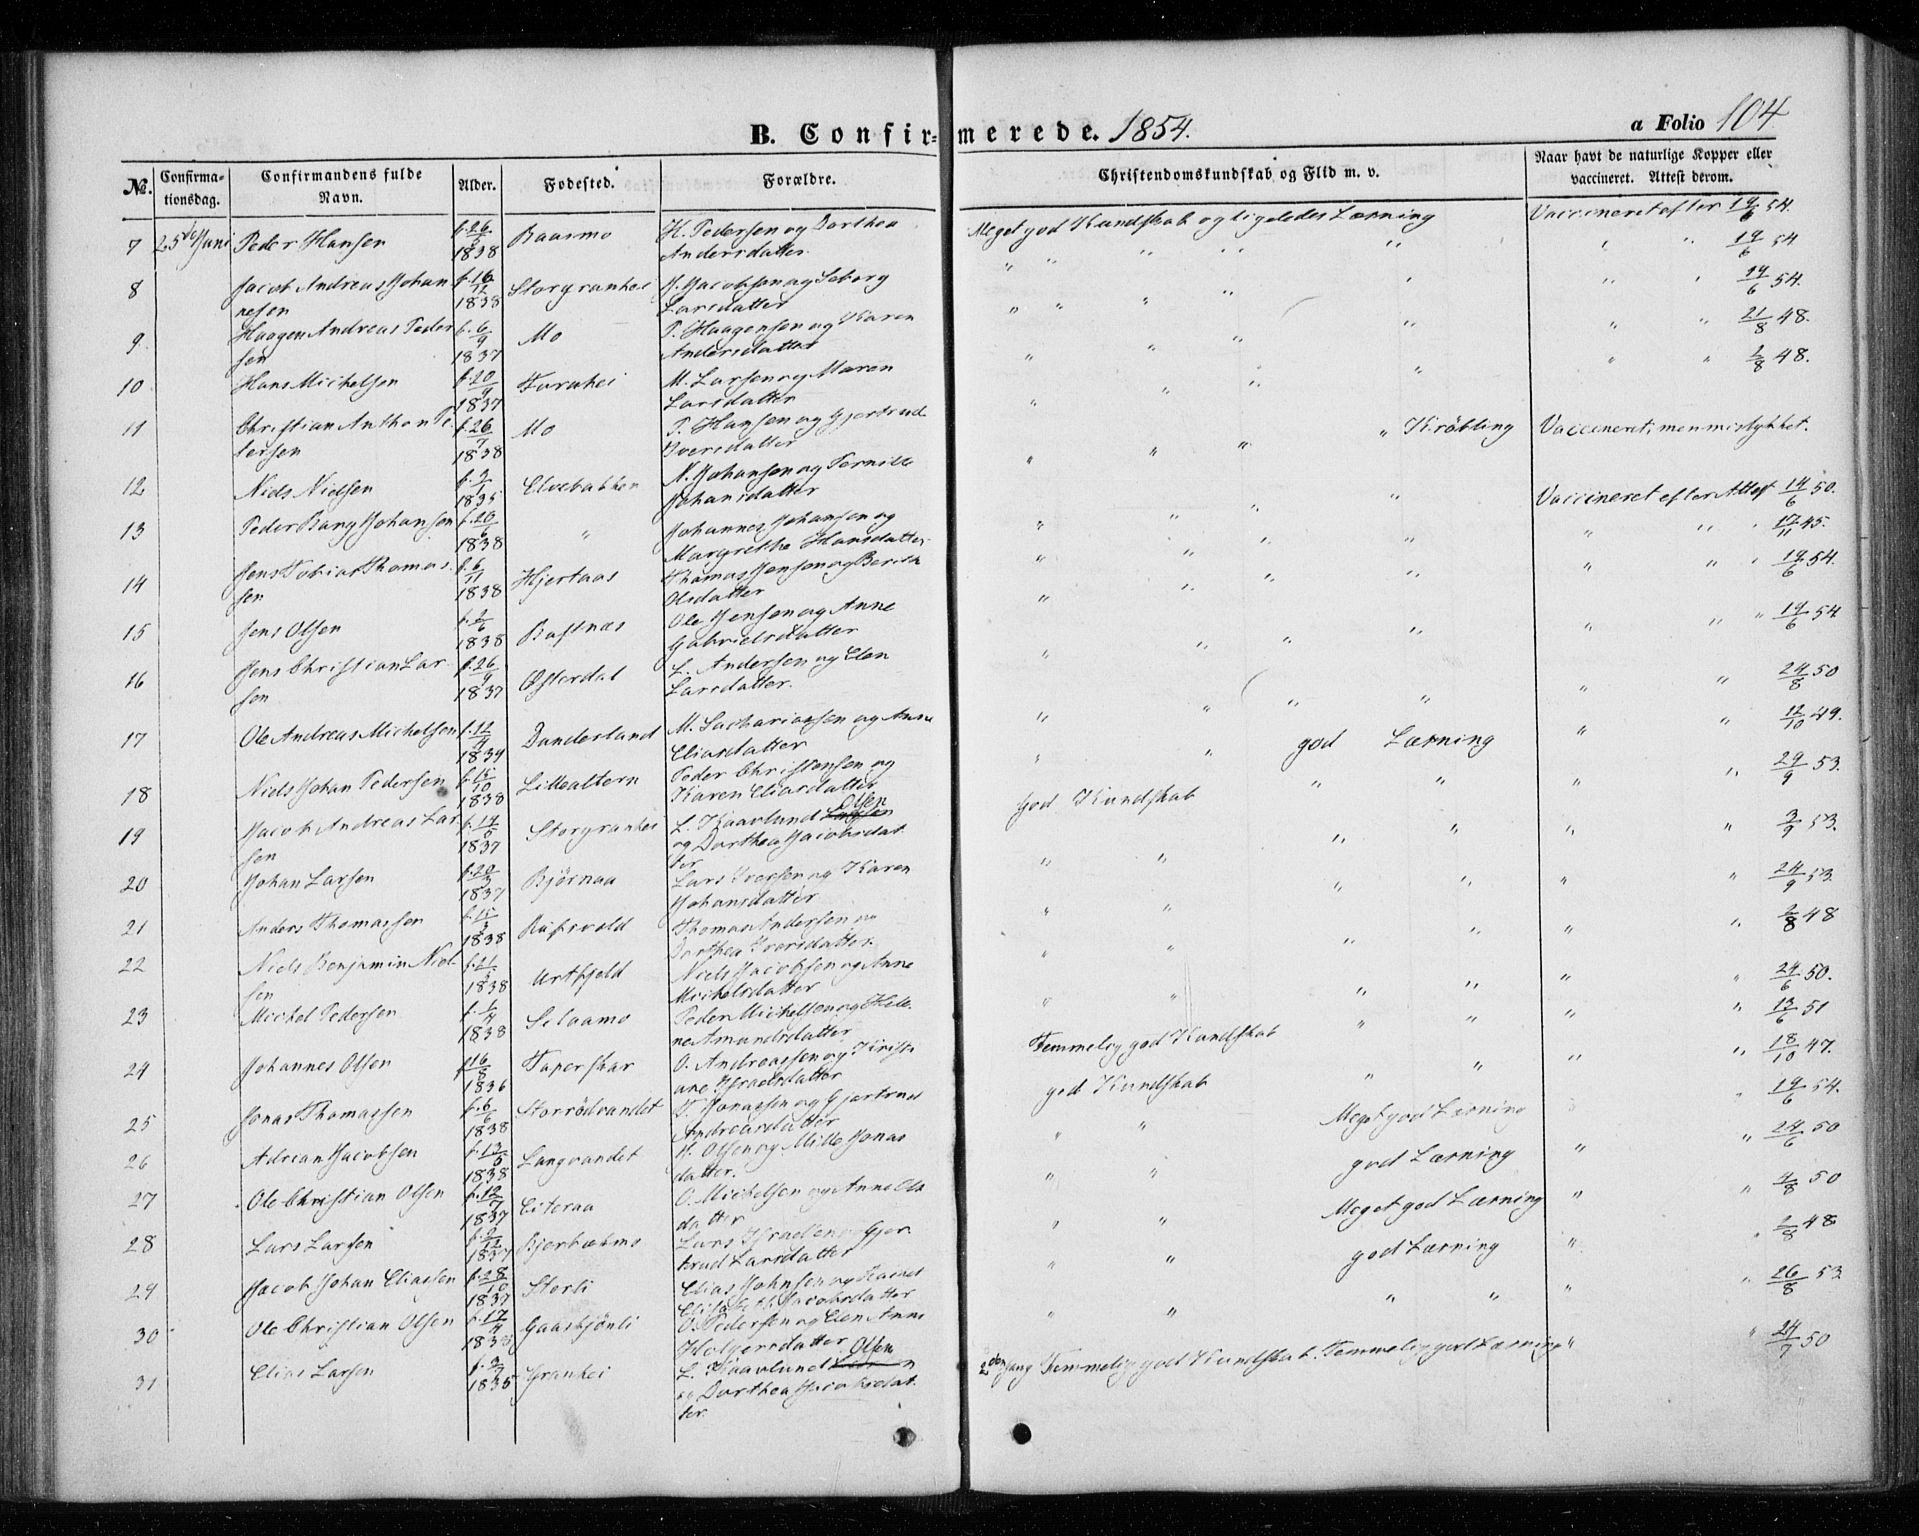 B. Confir= merede. 1854.
a Folio 104
№. Confirma-tionsdag. Confirmandens fulde Navn. Alder. Fødested. Forældre. Christendomskundskab og Flid m. v. Naar havt de naturlige Kopper eller vaccineret. Attest derom.
7 25de Juni Peder Hansen f. 26/5 1838 Baasmo H. Pedersen og Dorthea Andersdatter. Meget god Kundskab og ligeledes Lærning Vaccineret efter 19/6 54.
8 Jacob Andreas Johannesen f. 16/12 1838 Storgranhei J. Jacobsen og Seborg Larsdatter " " " " " " " 19/6 54
9 Haagen Andreas Pedersen f. 6/9 1837 Mo P. Haagensen og Karen Andersdatter " " " " " " " 19/6 54.
10 Hans Michelsen f. 20/9 1837 Furuhei M. Larsen og Maren Larsdatter " " " " " " 21/8 48.
11 Christian Anthon Petersen f. 26/7 1838 Mo P. Hansen og Gjertrud Iversdatter " " " " " " 2/8 48.
12 Niels Nielsen f. 2/1 1835 Elvebakken N. Johansen og Pernille Johansdatter " " " " Kröbling Vaccineret, men mislykket.
13 Peder Bang Johansen f. 20/6 1838 " Johannes Johansen og Margrethe Hansdatter " " " " Vaccineret efter Attest 14/6 50.
14 Jens Tobias Thomassen f. 6/11 1838 Hjertaas Thomas Jensen og Berith Olsdatter " " " " " " " 17/11 45.
15 Jens Olsen f. 2/6 1838 Bastnæs Ole Jensen og Anne Gabrielsdatter " " " " " " " 19/6 54.
16 Jens Christian Larsen f. 26/9 1837 Østerdal L. Andersen og Elen Larsdatter. " " " " " " 19/6 54
17 Ole Andreas Michelsen f. 12/4 1839 Dunderland M. Sachariassen og Anne Eliasdatter " " " " " " 24/8 50
18 Niels Johan Pedersen f. 15/10 1838 Lillealteren Peder Christensen og Karen Eliasdatter " " god Lærning " " 12/10 49.
19 Jacob Andreas Larsen f. 14/5 1837 Storgranhei L. Kaavlund Olsen og Dorthea Jacobsdatter God Kundskab " " " " 29/9 53.
20 Johan Larsen f. 20/3 1837 Bjørnaa Lars Iversen og Karen Johansdatter " " " " " " 3/9 53.
21 Anders Thomassen f. 15/3 1838 Thomas Andersen og Dorthea Iversdatter. " " " " " " 24/9 53
22 Niels Benjamin Nielsen f. 21/5 1838 Urtfjeld Niels Jacobsen og Anne Michelsdatter " " " " " " 2/8 48
23 Michel Pedersen f. 1/4 1838 Selaamo Peder Michelsen og Helene Amundsdatter " " " " " " 24/6 50.
24 Johannes Olsen f. 16/8 1836 Taperskar O. Andreassen og Kristiane Israelsdatter Temmelig god Kundskab " " " " 13/6 51
25 Jonas Thomassen f. 6/6 1838 Storrödvandet T. Jonassen og Gjertrud Andreasdatter god Kundskab " " " " 18/10 47.
26 Adrean Jacobsen f. 13/5 1838 Langvandet J. Olsen og Mille Jonasdatter. " " Meget god Lærning " 19/6 54.
27 Ole Christian Olsen f. 12/7 1837 Eiteraa O. Michelsen og Anne Olsdatter " " god Lærning " " 24/6 50
28 Lars Larsen f. 2/12 1837 Lars Israelsen og Gjertrud Larsdatter " " Meget god Lærning " " 4/8 50
29 Jacob Johan Eliassen f. 28/10 1837 Storli Elias Johnsen og Elisabeth Jacobsdatter " " god Lærning " " 2/8 48
30 Ole Christian Olsen f. 17/4 Gaaskjönli O. Pedersen og Elen Anne Holgersdatter " " " " " " 26/8 53
31 Elias Larsen f. 1835 Granhei L. Kaavlund Olsen og Dorthea Jacobsdatter. 2den gang Temmelig god Kundskab. Temmelig god Lærning " " 24/7 50